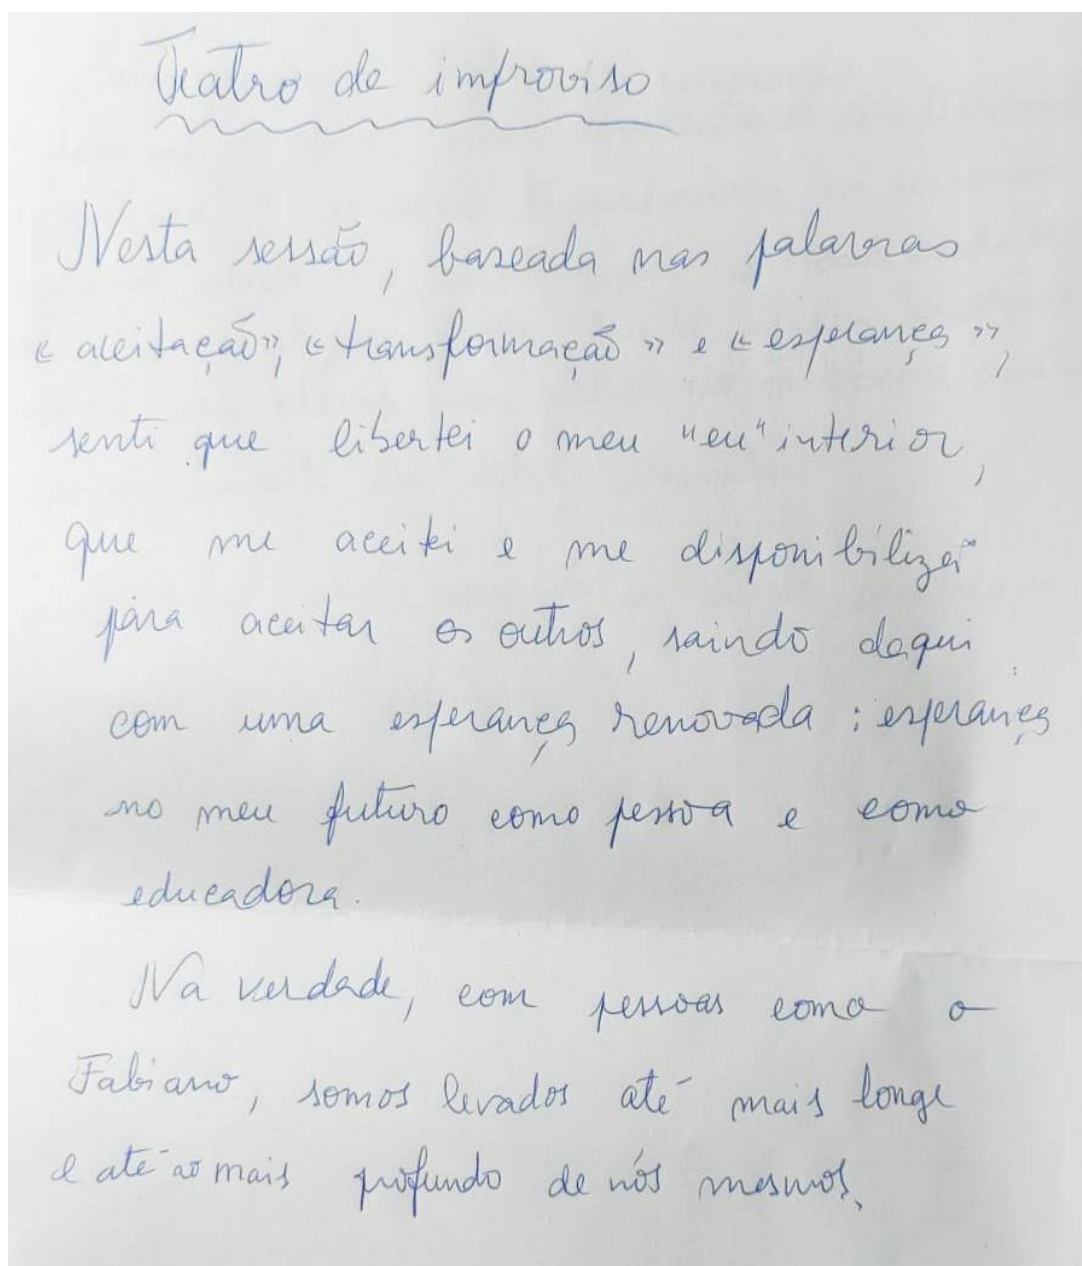 Teatro de improviso
Nesta sessão, baseada nas palavras
«aceitação», «transformação» e «esperança»,
senti que libertei o meu "eu" interior,
que me aceitei e me disponibilizei
para aceitar os outros, saindo daqui
com uma esperança renovada: esperança
no meu futuro como pessoa e como
educadora.
Na verdade, com pessoas como o
Fabiano, somos levados até mais longe
e até ao mais profundo de nós mesmos.